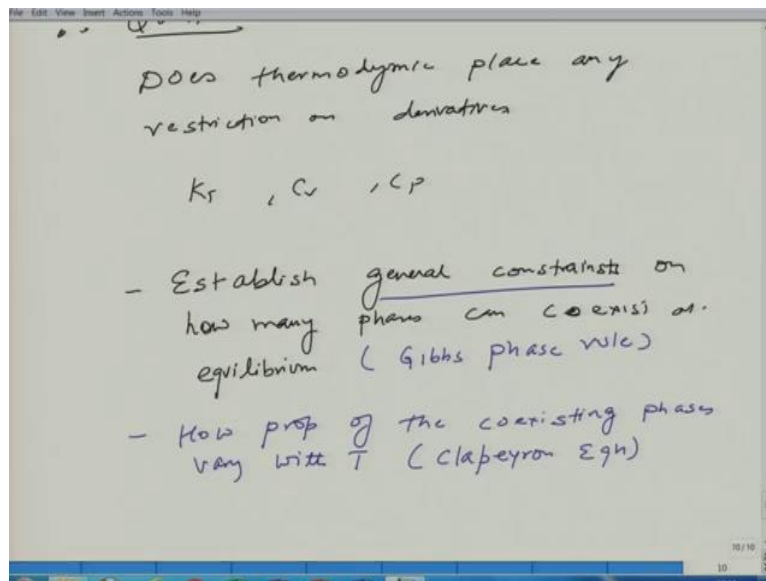 File Edit View Insert Actions Tools Help
Does thermodymic place any
restriction on derivatives
KT , Cv , CP
- Establish general constraints on
how many phases can coexist at
equilibrium ( Gibbs phase rule)
- How prop of the coexisting phases
vary with T ( Clapeyron Eqn)
10/10
10